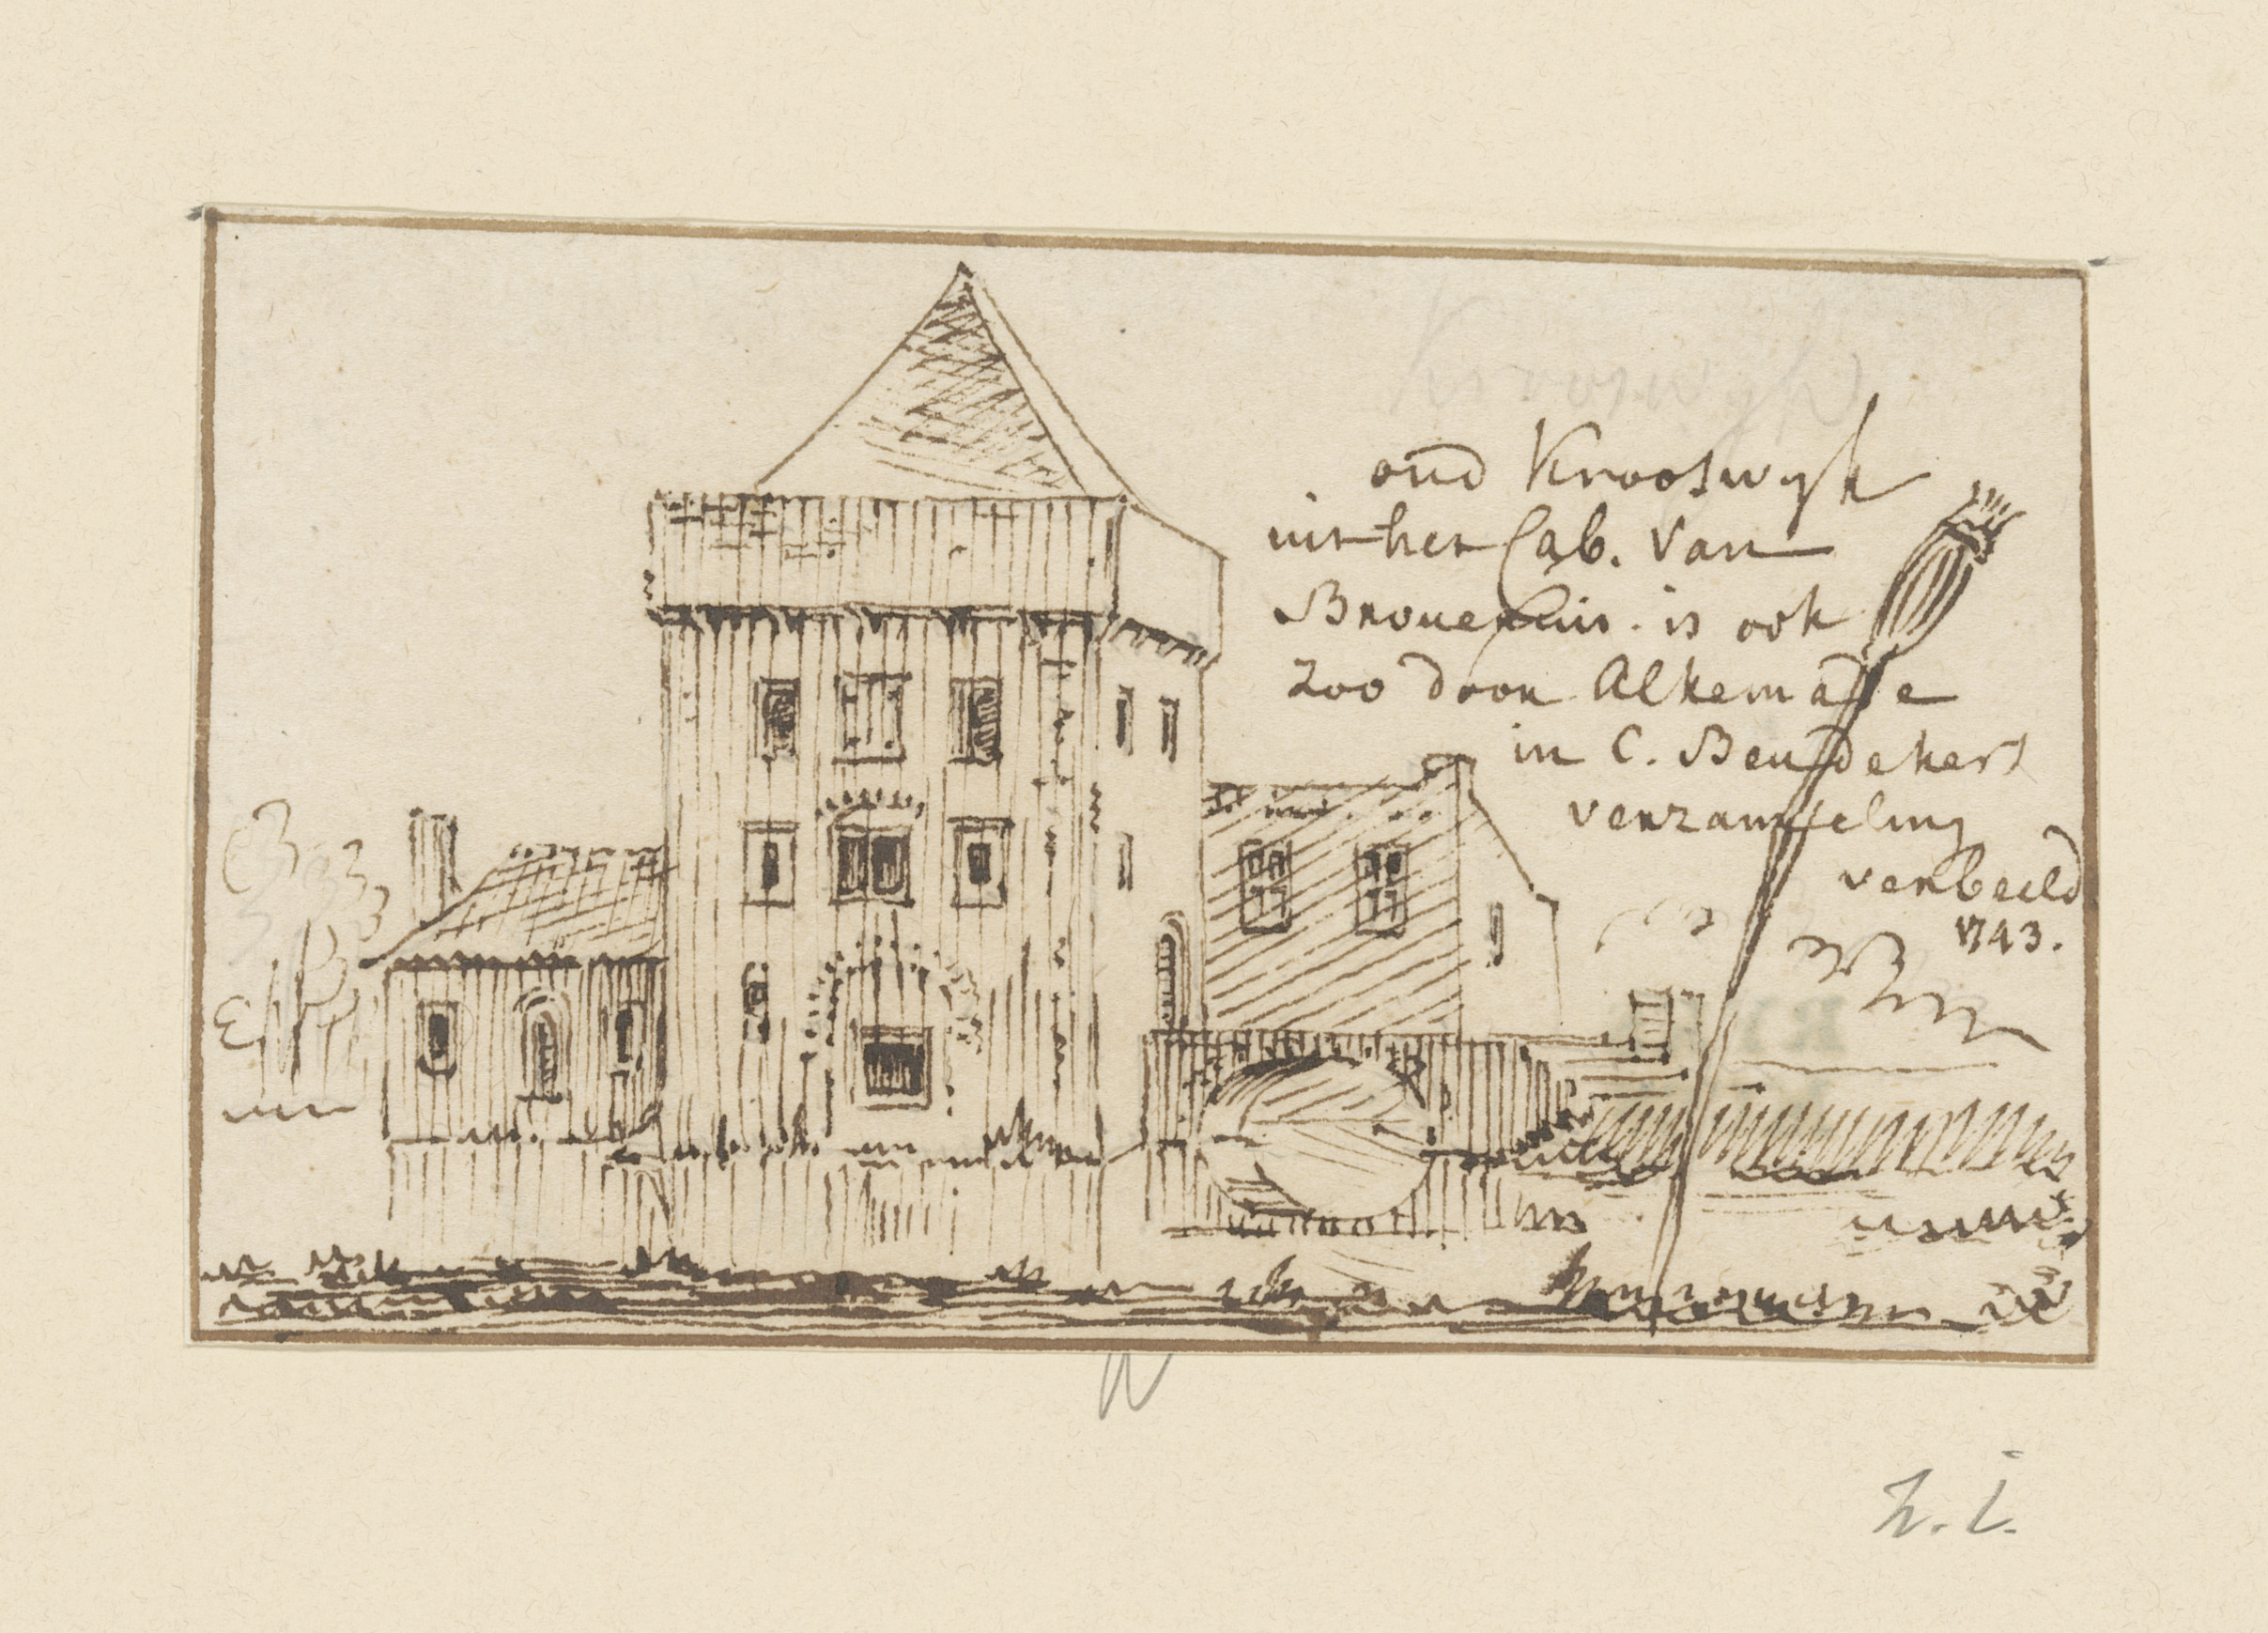 oud Krooswyk
uit het Cab. Van
Brouerius. is ook
zoo door Alkemade
in C. Beudekers
verzameling
verbeeld
1743.
N
z.i.